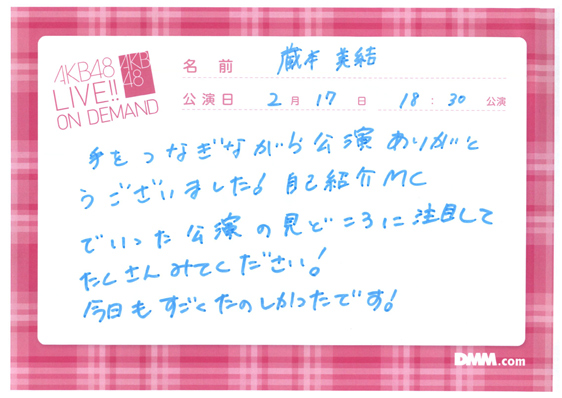 AKB48
LIVE!!
ON DEMAND
AKB
48
名前 蔵本 美結
公演日 2月17日 18:30 公演
手をつなぎながら公演ありがと
うございました! 自己紹介MC
でいった公演の見どころに注目して
たくさんみてください!
今日もすごくたのしかったです!
DMM.com